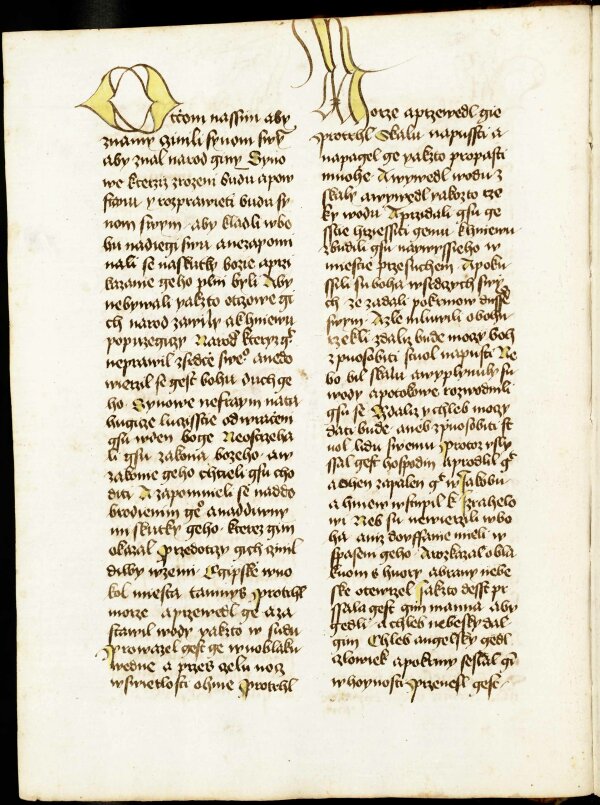 Otcom nassim aby
znamy czinili synom swy͛
aby znal narod giny Syno
we kterziz zrozeni budu a pow
stanu y rozprawieti budu sy
nom swym aby kladli w bo
hu nadiegi swu a nezapom
nali se naskutky bozie a przi
kazanie geho plni byli Aby
nebywali yakzto otczowe gi
ch narod zawily a k hniewu
popuzegiczy Narod kteryz g͛
neprawil srdce sweº a nedo
wierzil se gest bohu duch ge
ho Synowe nefraym nata
hugicze luczisstie od wraczeni
gsu w den boge Neostrzieha
li gsu zakona bozeho a w
zakone geho chtieli gsu cho
diti A zapomneli se naddo
brodienim geº a naddiwny
mi skutky geho kterez gim
okazal Przedotczy gich czinil
diwy w zemi Egipske w uo
kol miesta tannys Protrhl
morze a przewedl ge a za
stawil wody yakzto w sudu
Prowazel gest ge w uoblaku
we dne a przes czelu nocz
w swietlosti ohnie Protrhl
Morze a przewedl gie
Protrhl Skalu napussti a
napagel ge yakzto propasti
mnohe A wywedl wodu z
skaly a wywedl yakozto rze
ky wodu A przidali gsu ge
sstie hrziessiti gemu k hniewu
zbudili gsu naywyssieho w
miestie przesuchem A poku
ssili su boha w srdczych swy
ch ze zadali pokrmow dusse͛
swym A zle mluwili o bohu
rzekli zdaliz bude moczy boh
zpuosobiti stuol napusti Ne
bo bil skalu a wyplynuly su
wody a potokowe rozwodnili
gsu se Zdaliz y chleb moczy
dati bude aneb zpuosobiti st
uol lidu swemu Protoz usly
ssal gest hospodin a prodlil g͛
a ohen zapalen g͛ w Jakobu
a hniew wstupil k Izrahelo
wi Neb su newierzili w bo
ha aniz dowffanie mieli w
spaseni geho A rozkazal obla
kuom s huory a brany nebe
ske otewrzel Jakzto desst pr
ssala gest gim manna aby
gedli a chleb nebesky dal
gim Chleb angelsky gedl
czlowiek a pokrmy seslal gi͛
w hoynosti Przenesl gest